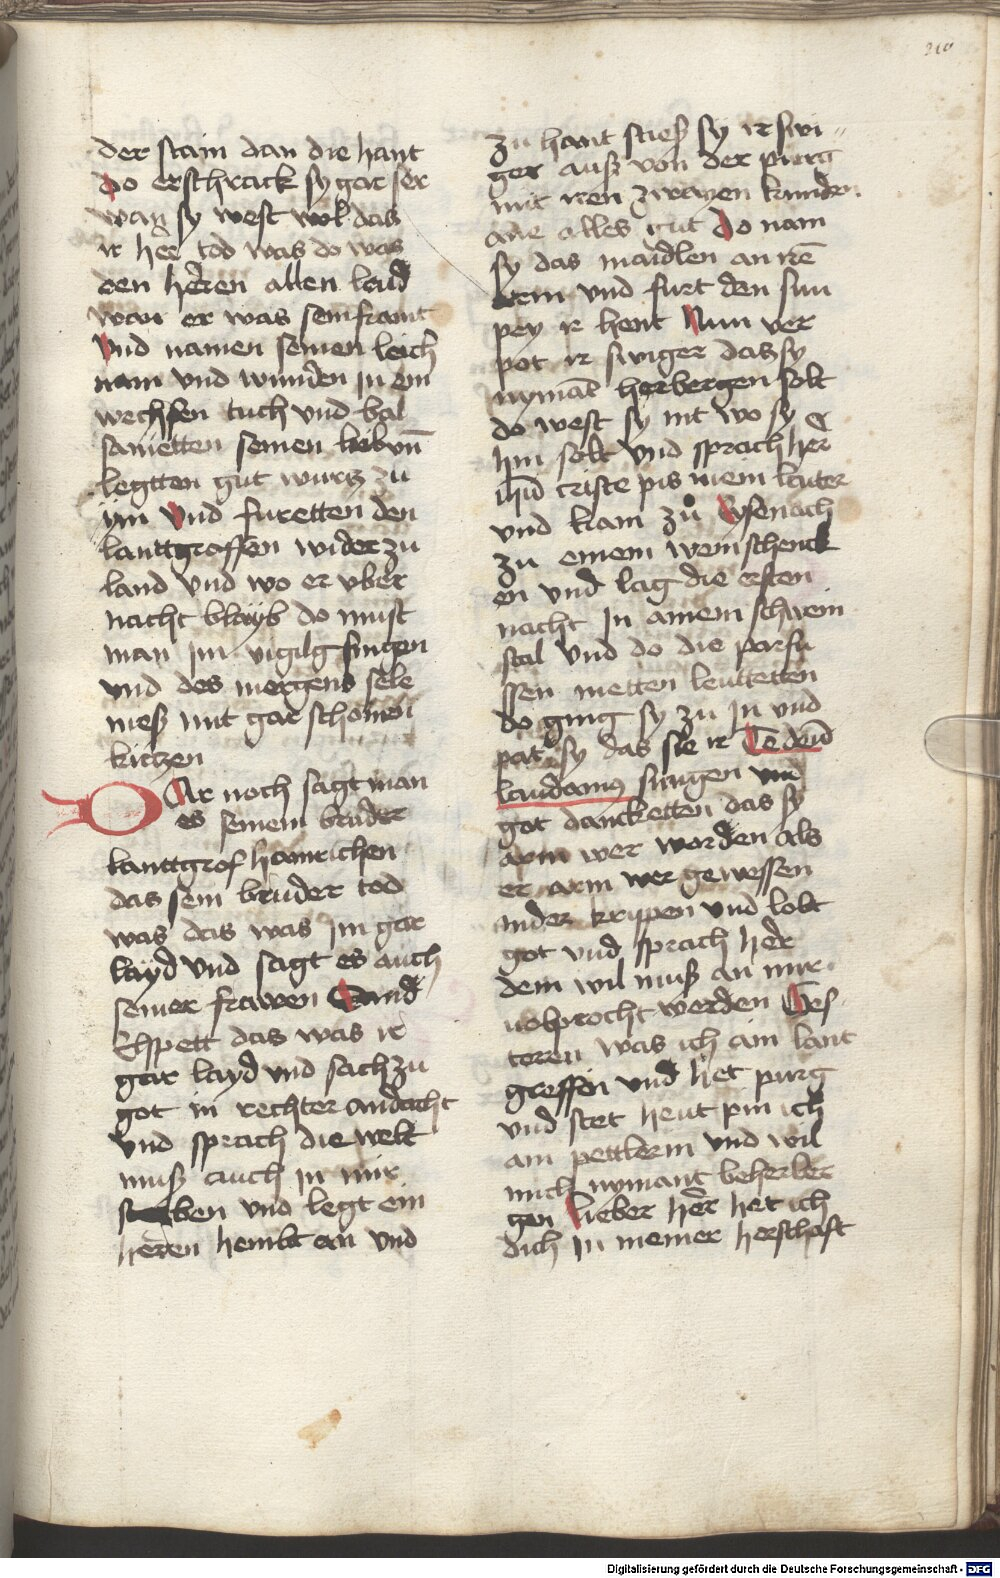 210
der stain dan die hant
do erschrack sy gar ser
wan sy west wol das
ir her tod was do was
den heren allen laid
wan er was senfftmut
Vnd namen seinen leich
nam vnd wunden in ein
wechssen tuch vnd bal
sametten seinen leib vn̄
legtten gut wurcz zu
im Vnd furetten den
lanttgroffen wider zu
land vnd wo er vber
nacht blayb do must
man im vigilg singen
vnd des morgens sele
mess mit gar schonen
kirczen
Dar noch sagt man
es seinem bruder
lanttgrof hainrichen
das sein bruder tod
was das was im gar
layd vnd sagt es auch
seiner frawen Sand
Elspett das was ir
gar layd vnd sach zu
got in rechter andacht
vnd sprach die welt
muss auch in mir
sterben vnd legt ein
heren hembt an vnd
zu hant stiess sy ir swi
ger auss von der purg
mit iren zwayen kinden
ane alles gut Do nam
sy das maidlen an irē
arm vnd furt den sun
pey ir hent Nun ver
pot ir swiger das sy
nymāt herbergen solt
do west sy nit wo sy
hin solt vnd sprach her
ihū criste pis mein laiter
vnd kam zu Eysenach
zu einem weinschenck
en vnd lag die ersten
nacht in ainem schwein
stal vnd do die parfu
ssen metten leuttetten
do ging sy zu in vnd
pat sy das sie ir Te deū
laudamus sungen vnd
got danncketten das sy
arm wer worden als
er arm wer gewessen
in der krippen vnd lobt
got vnd sprach her
dein wil muss an mir
volprocht werden Ges
teren was ich ain lant
greffin vnd het purg
vnd stet heut pin ich
ain pettlerin vnd wil
mich nymant beherber
gen lieber her het ich
dich in meiner herschaft
Digitalisierung gefördert durch die Deutsche Forschungsgemeinschaft - DFG